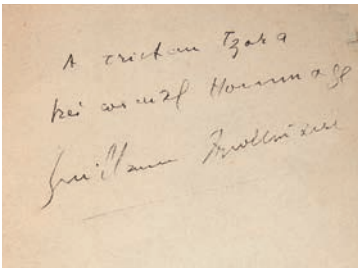 A Tristan Tzara
très cordial Hommage
Guillaume Apollinaire